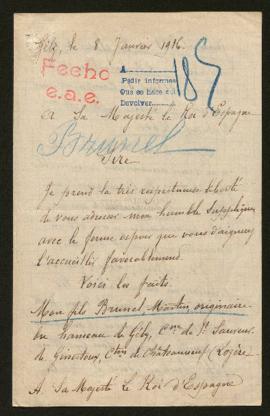 Gély, le 8 Janvier 1916.
Fecho
e.a.e.
A
Pedir informes
Que se hace
Devolver
185
A Sa Majesté Le Roi d'Espagne
Brunel
Sire
Je prend la très respectueuse liberté
de vous adresser mon humble supplique
avec le ferme espoir que vous daignerez
l'accueillir favorablement.
Voici les faits.
Mon fils Brunel Martin, originaire
du hameau de Gély, Cne de St Sauveur
de Ginestoux, Cton de Châteauneuf (Lozère
A Sa Majesté Le Roi d'Espagne